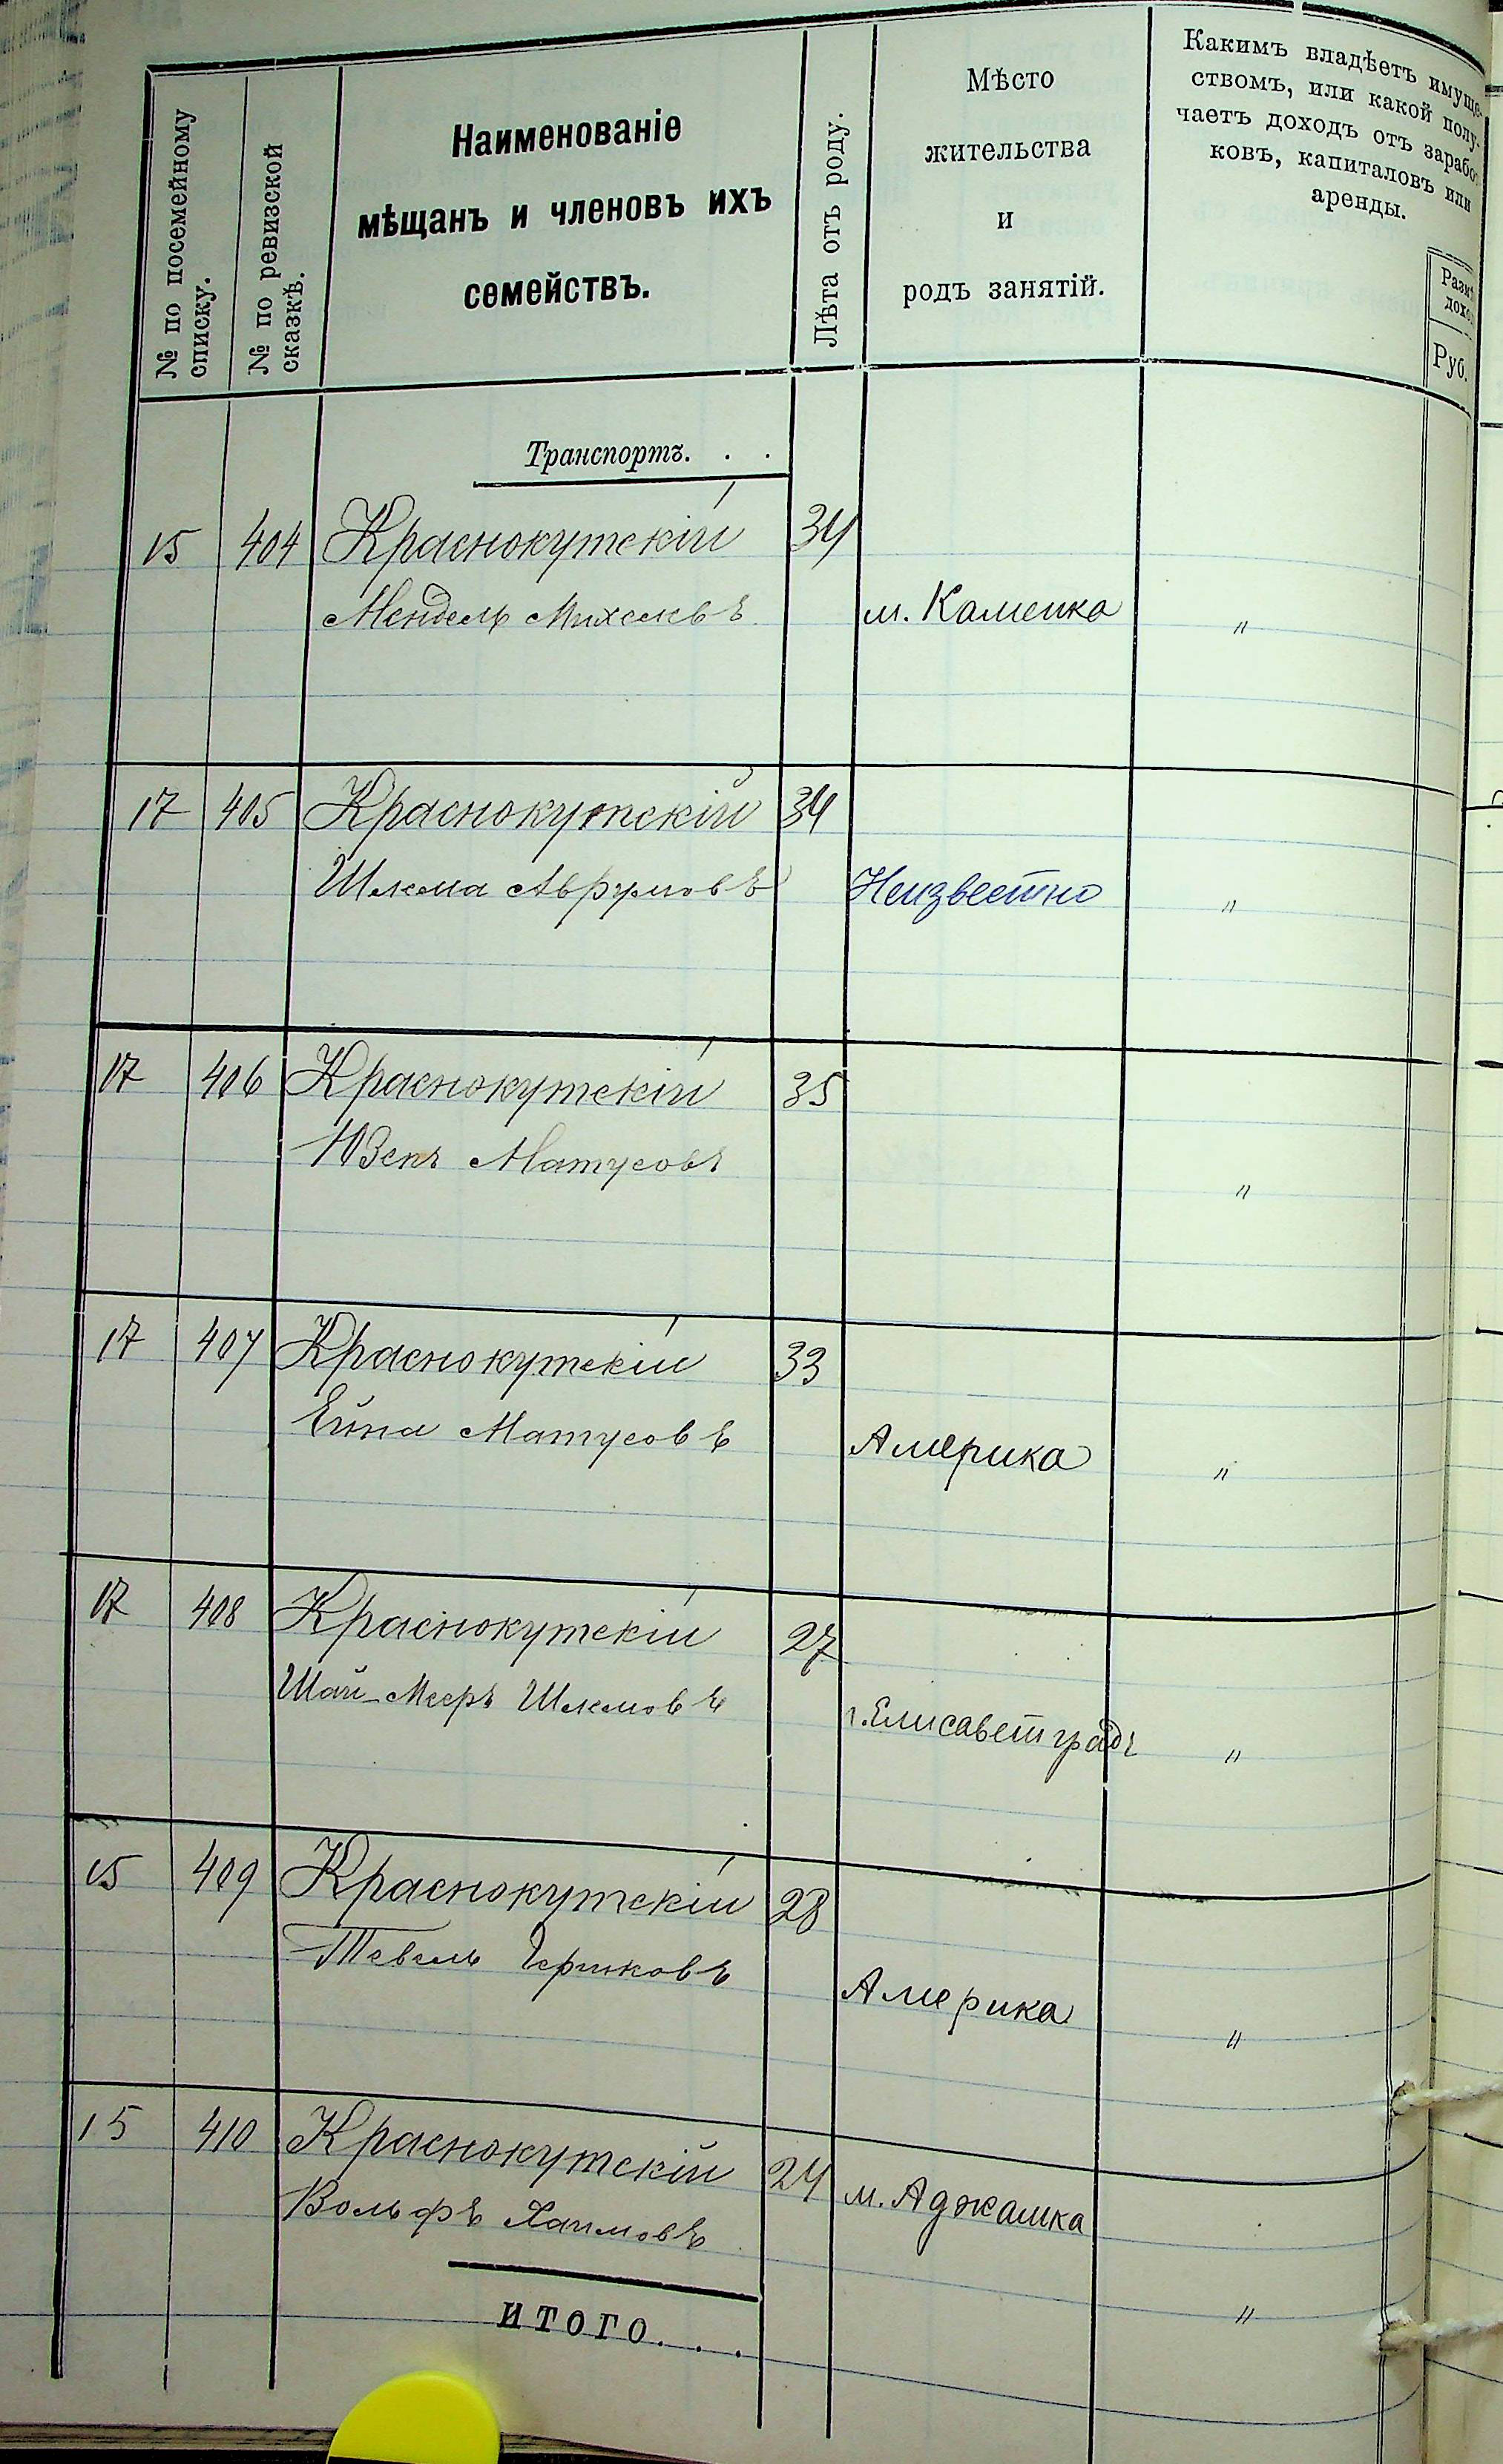 № по посемейному
списку.
№ по ревизской
сказкѣ.
Наименованіе
мѣщанъ и членовъ ихъ
семействъ.
Лѣта отъ роду.
Мѣсто
жительства
и
родъ занятій.
Какимъ владѣетъ имуще-
ствомъ, или какой полу-
чаетъ доходъ отъ зарабо
ковъ, капиталовъ или
аренды.
Размѣ
дохо
Руб.
Транспортъ. . .
15 404 Краснокутскій 34
Мендель Михелевъ м. Каменка "
17 405 Краснокутскій 34
Шлема Аврумовъ Неизвестно "
17 406 Краснокутскій 35
Юзепъ Матусовъ "
17 407 Краснокутскій 33
Ейна Матусовъ Америка "
17 408 Краснокутскій 27
Шай-Мееръ Шлемовъ г. Елисаветградъ "
15 409 Краснокутскій 28
Тевель Америка "
15 410 Краснокутскій 24 м. Аджамка
Вольфъ Хаимовъ "
ИТОГО. . .